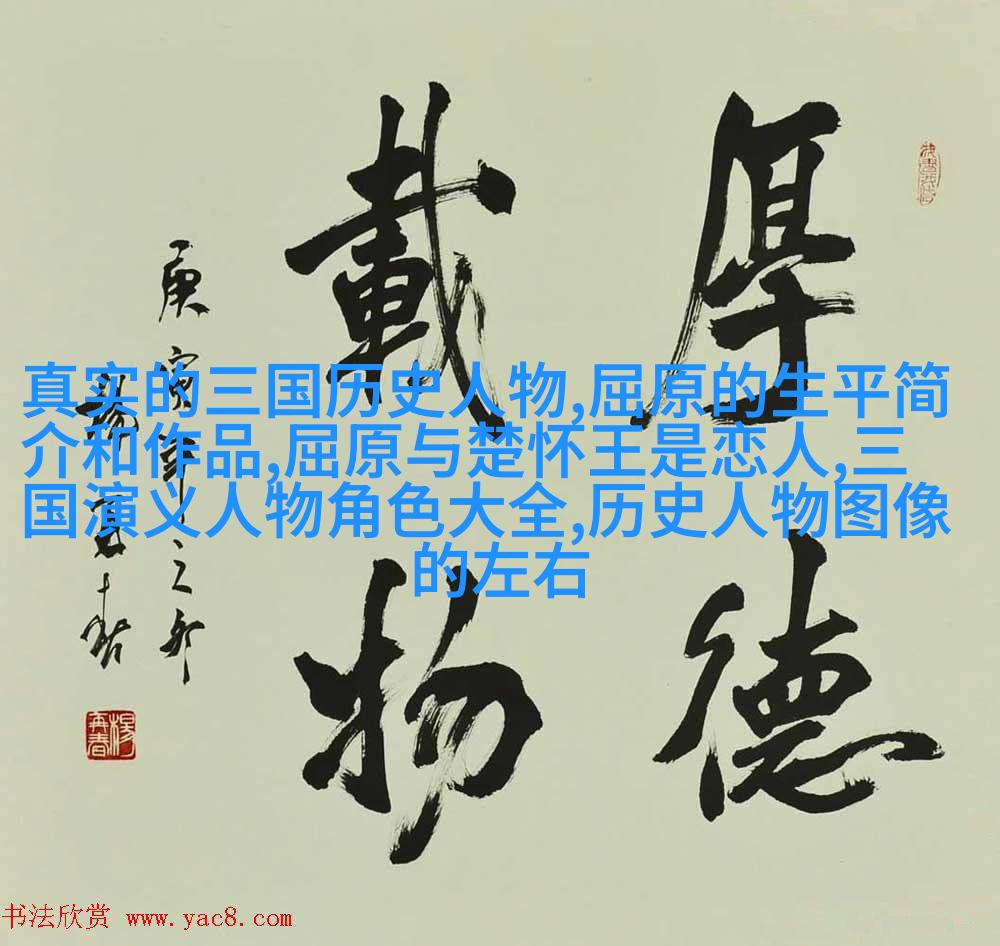 厚德
載物
庚寅年之秋
楊再春
楊再春
真实的三国历史人物,屈原的生平简
介和作品,屈原与楚怀王是恋人,三
国演义人物角色大全,历史人物图像
的左右
书法欣赏 www.yac8.com